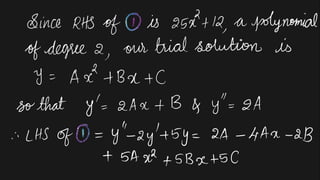 Since RHS of ① is 25x²+12, a polynomial
of degree 2, our trial solution is
y = Ax²+Bx+C
so that y' = 2Ax + B & y'' = 2A
∴ LHS of ① = y''-2y'+5y = 2A - 4Ax - 2B
+ 5Ax² + 5Bx + 5C